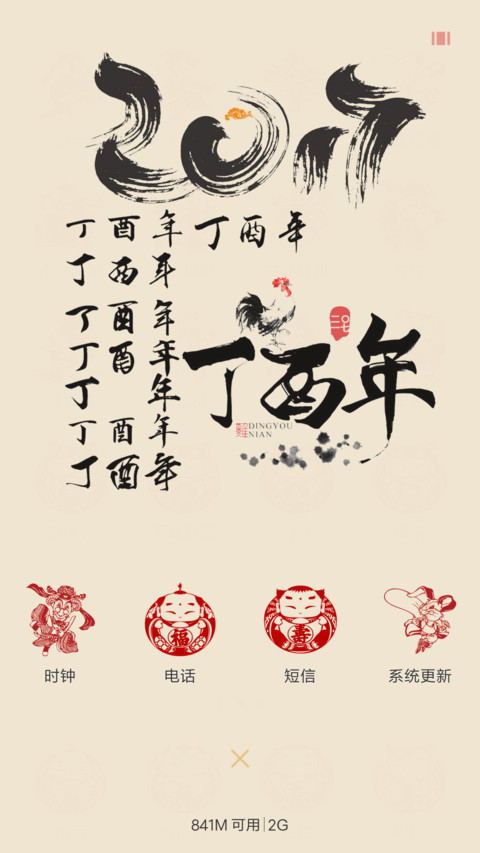 2017
丁酉年 丁酉年
丁酉年
丁酉年
丁酉年
丁年
丁酉年
丁酉年
丁酉年
DINGYOU
NIAN
福
壽
时钟
电话
短信
系统更新
841M 可用|2G